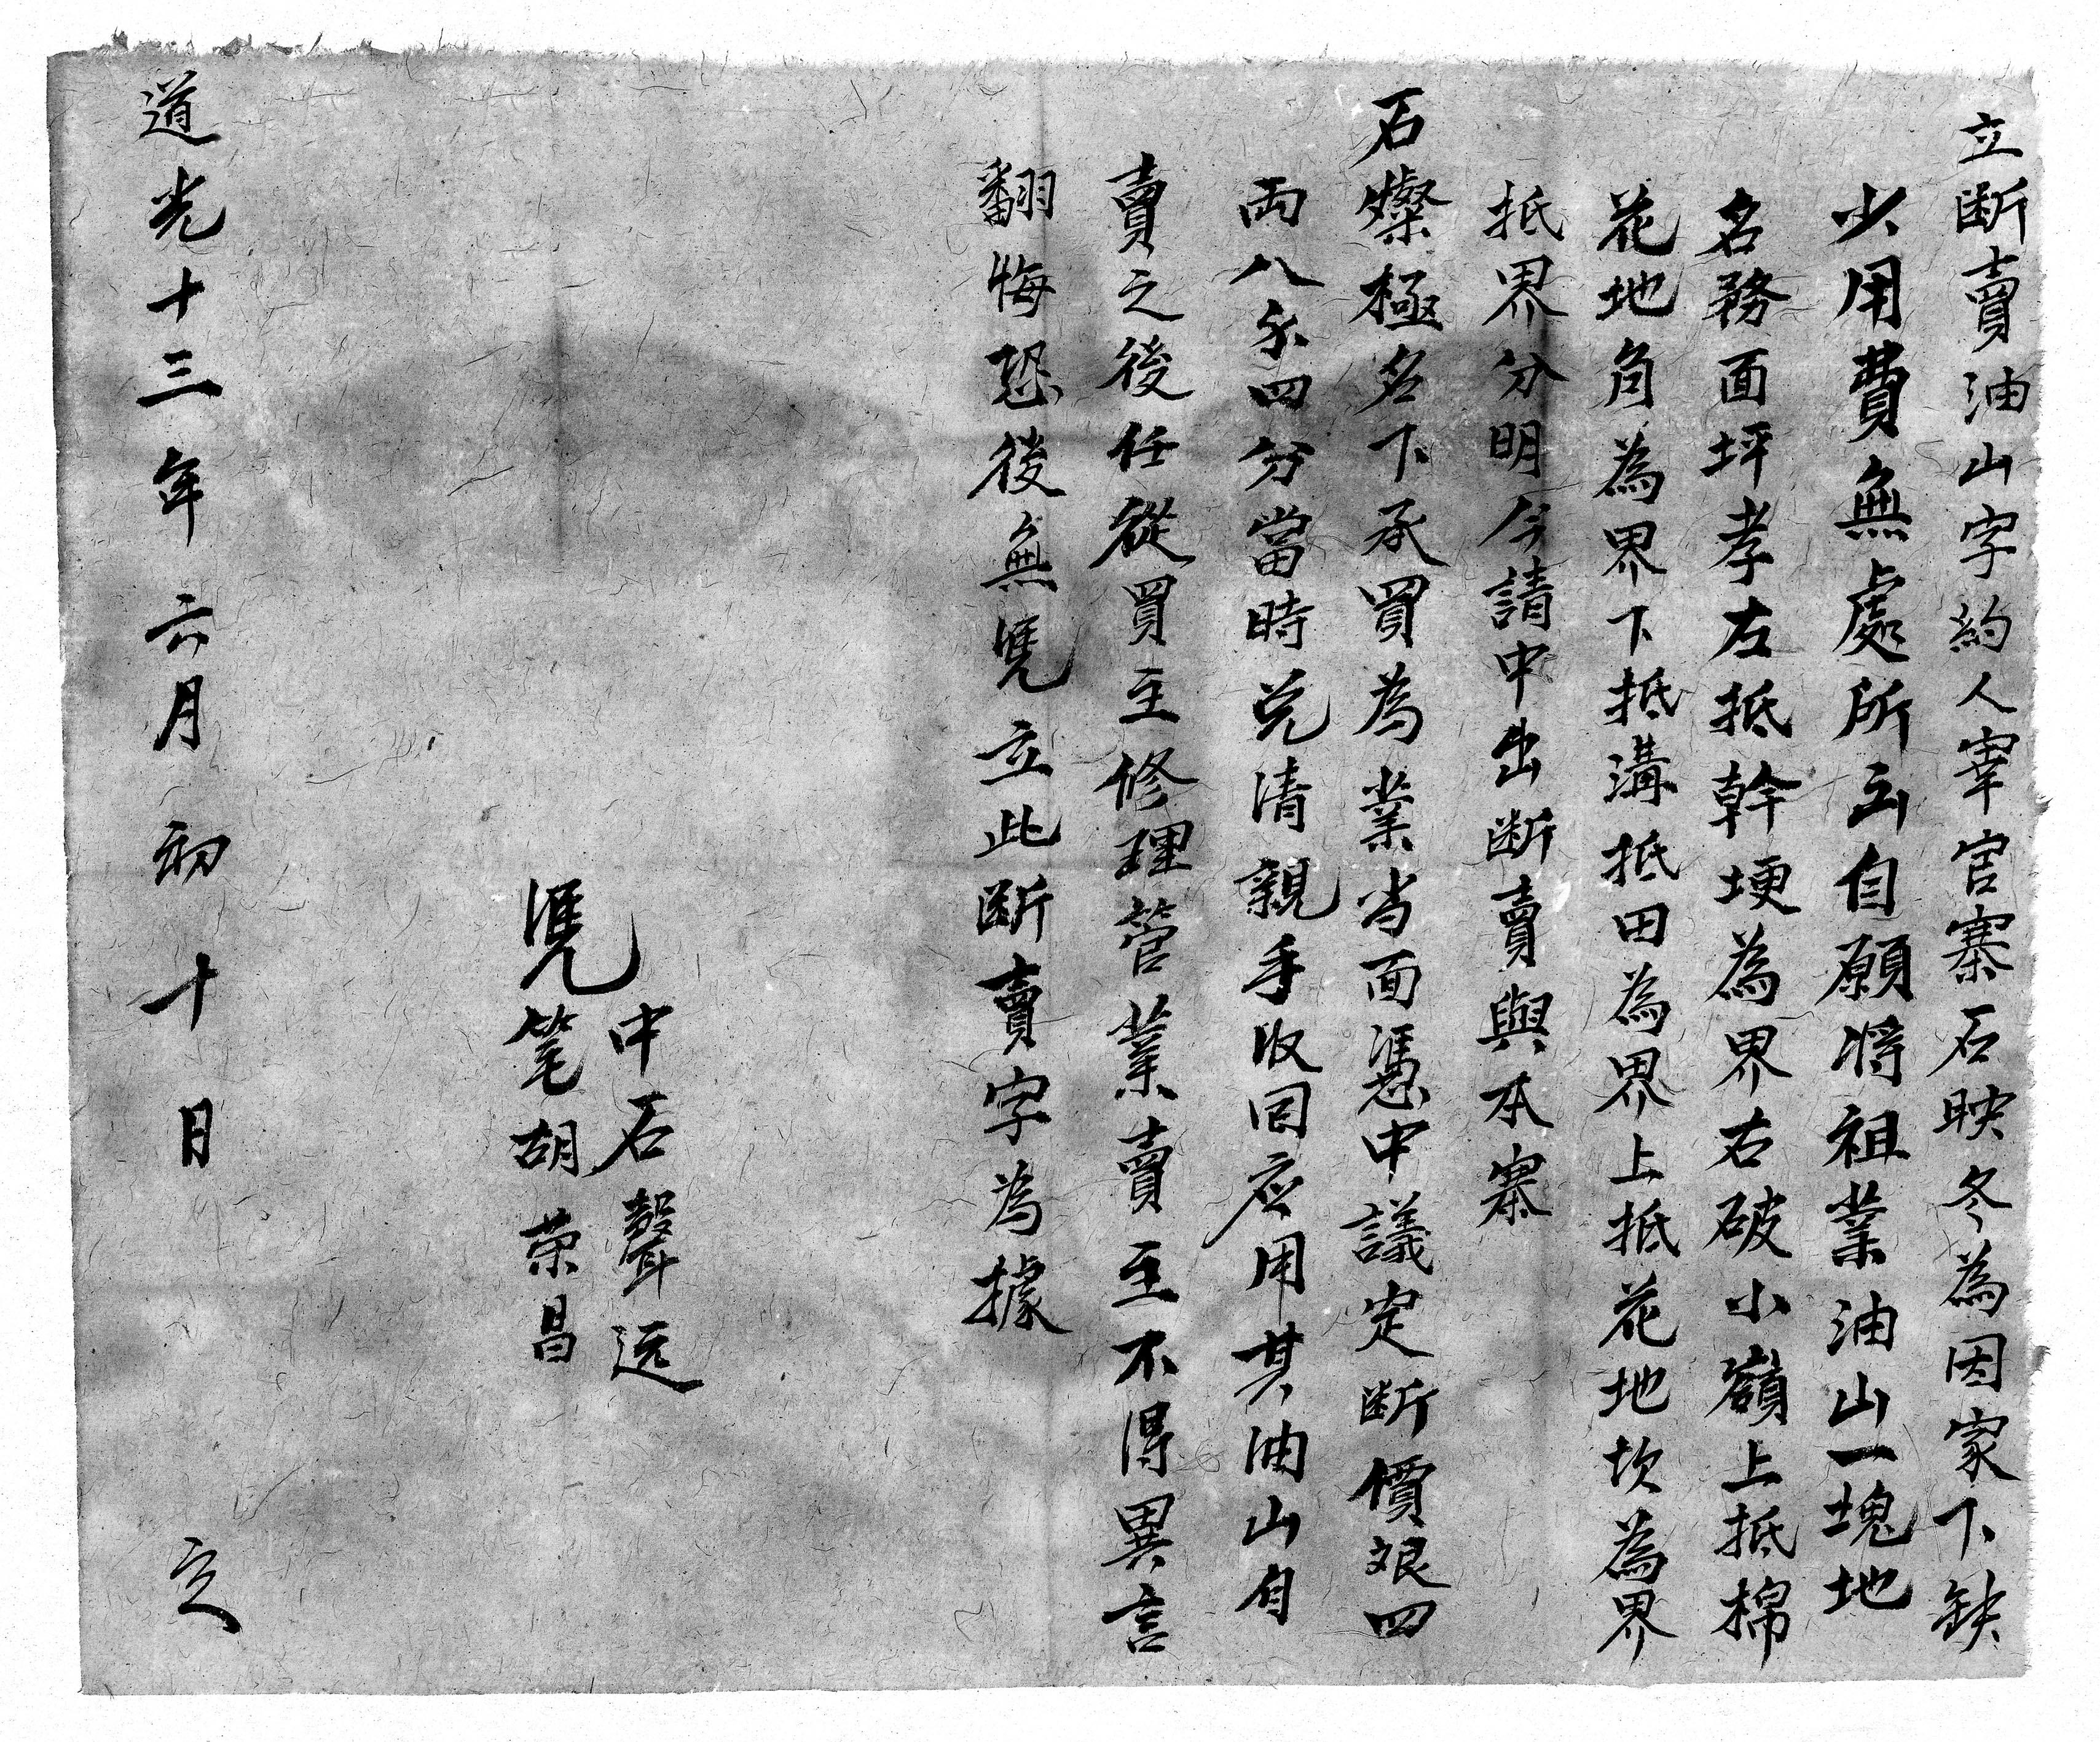 立断賣油山字約人宰官寨石映冬為因家下缺
少用費無處所出自願将祖業油山一塊地
名務面坪孝左抵幹埂為界右破小嶺上抵棉
花地角為界下抵溝抵田為界上抵花地坎為界
抵界分明今請中出断賣與本寨
石燦極名下承買為業当面憑中議定断價艮四
両八分四分當時兑清親手收回应用其油山自
賣之後任從買主修理管業賣主不得異言
翻悔恐後無凴立此断賣字為據
中石聲远
凴
笔胡荣昌
道光十三年六月初十日 立